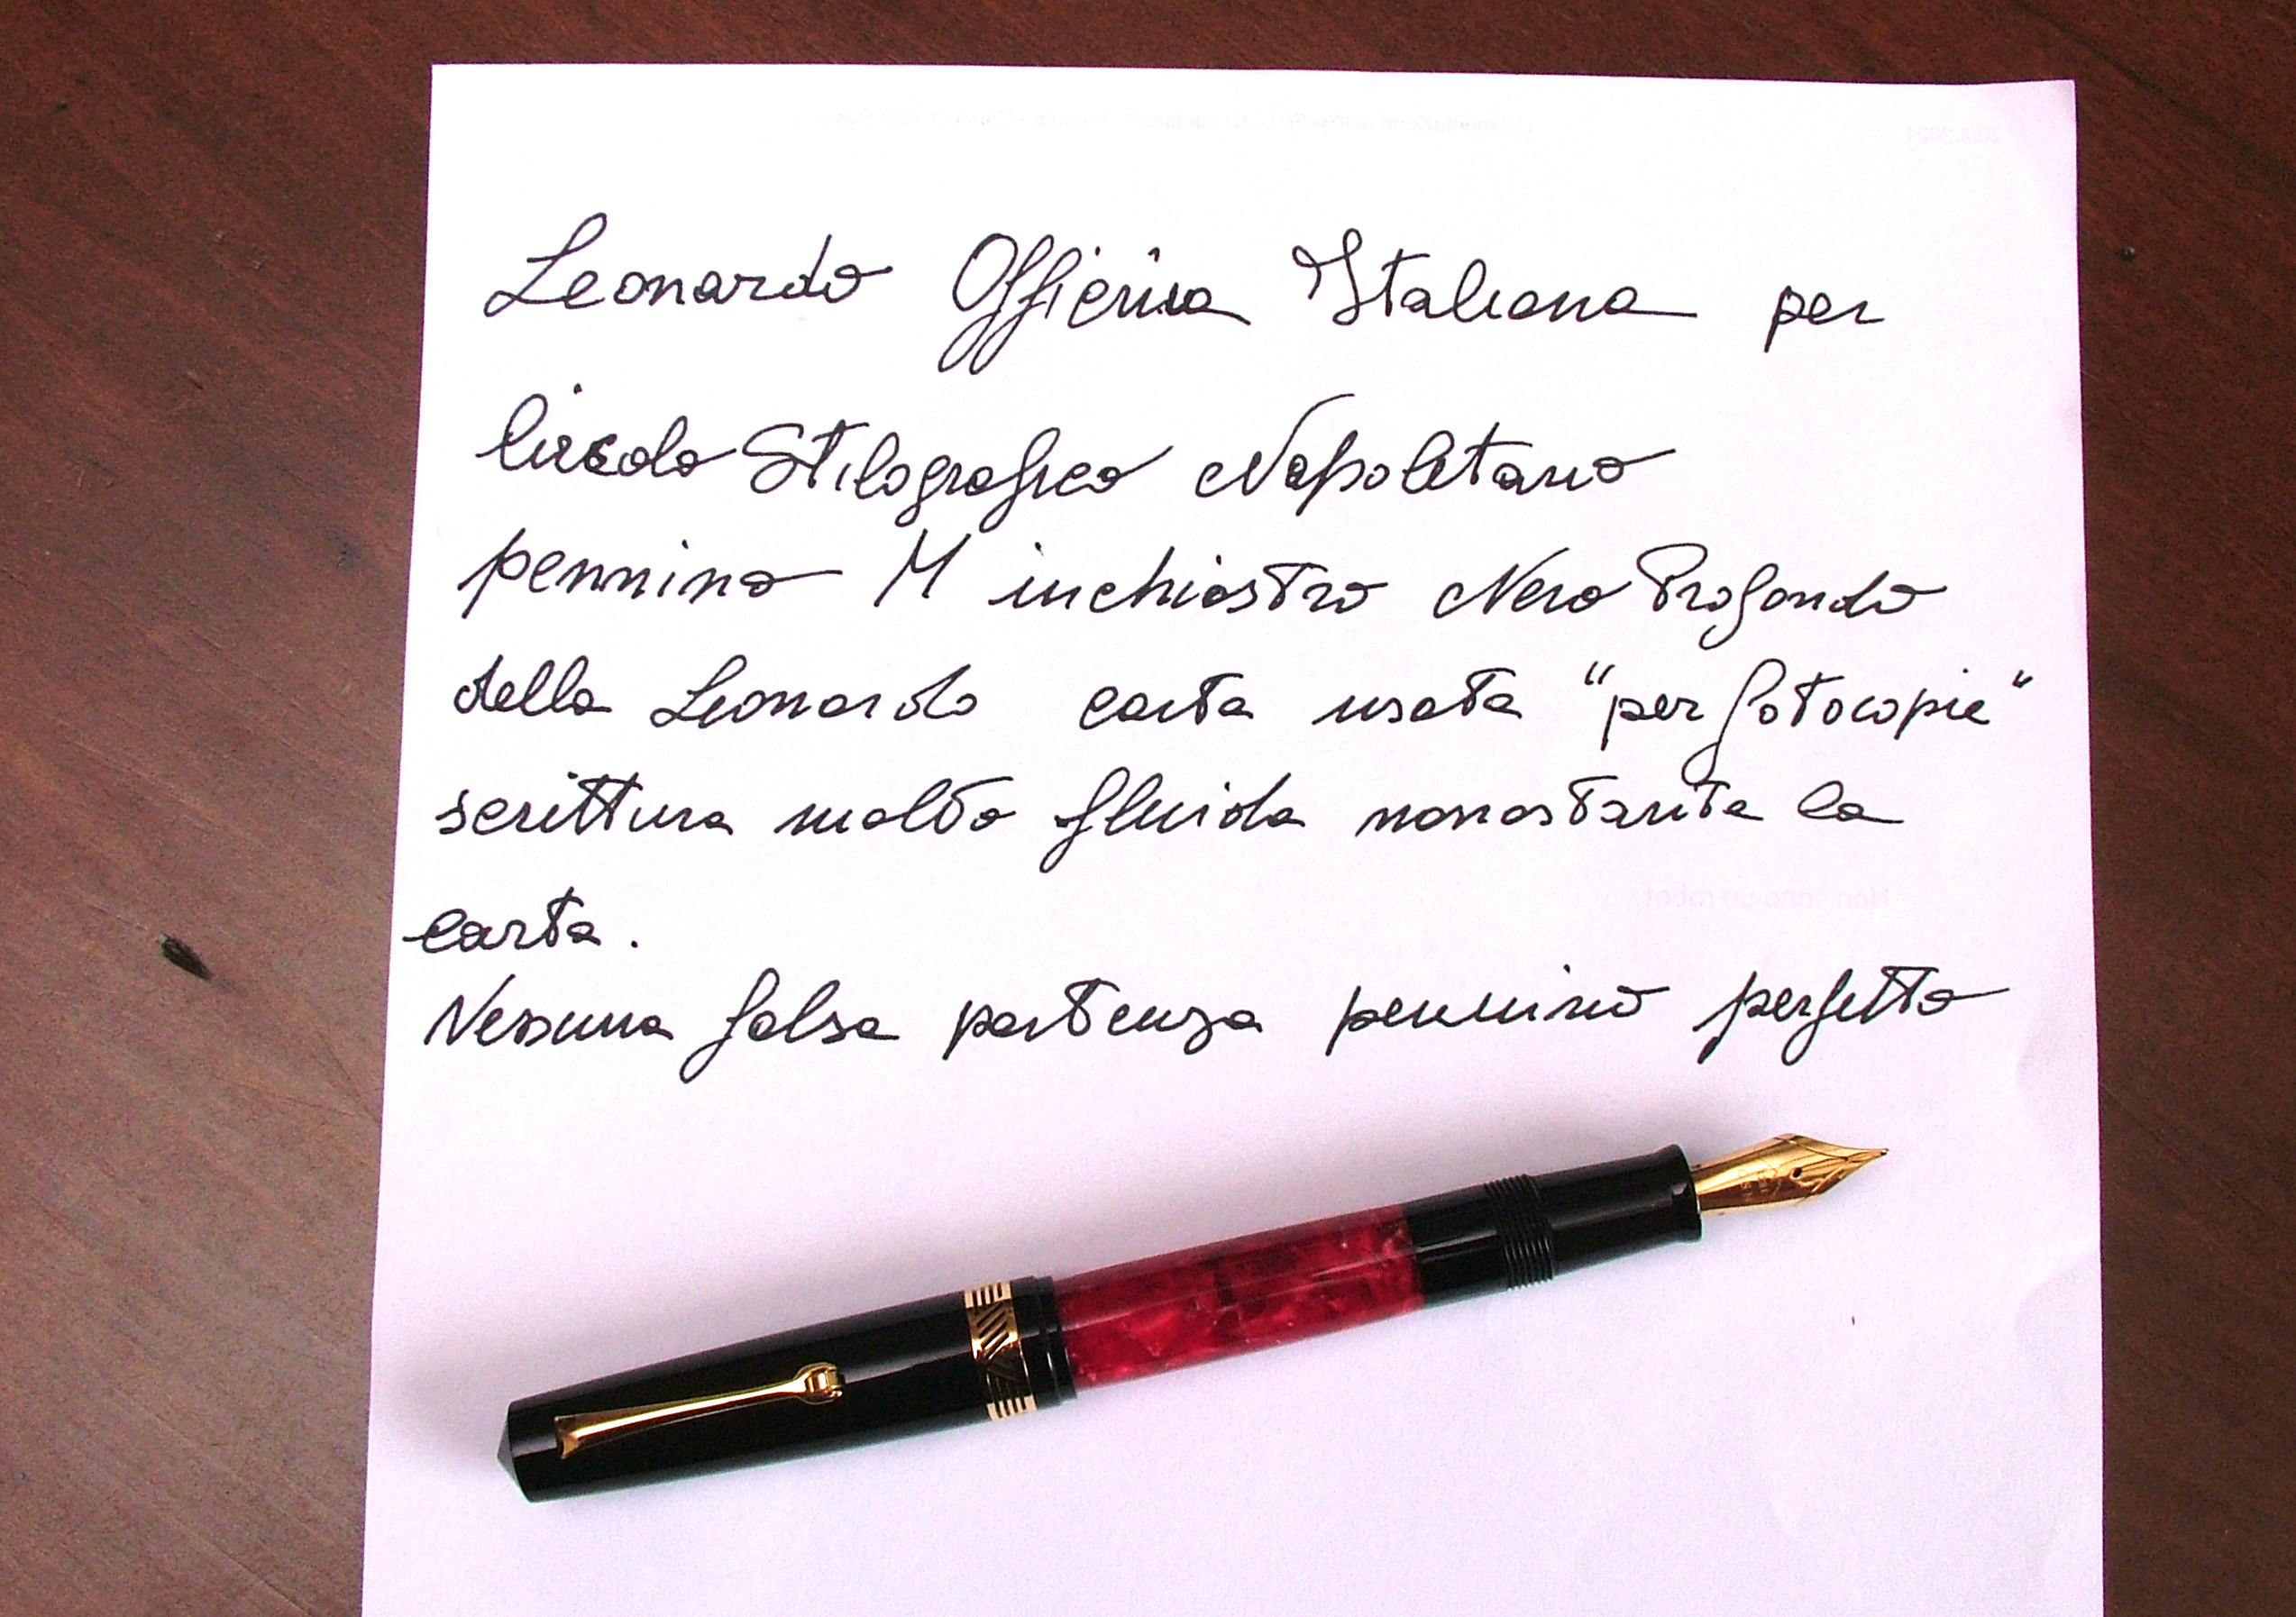 Leonardo Officina Italiana per
Circolo Stilografico Napoletano
pennino M inchiostro Nero Profondo
della Leonardo carta usata "per fotocopie"
scrittura molto fluida nonostante la
carta.
Nessuna falsa partenza pennino perfetto
Non sono un robot